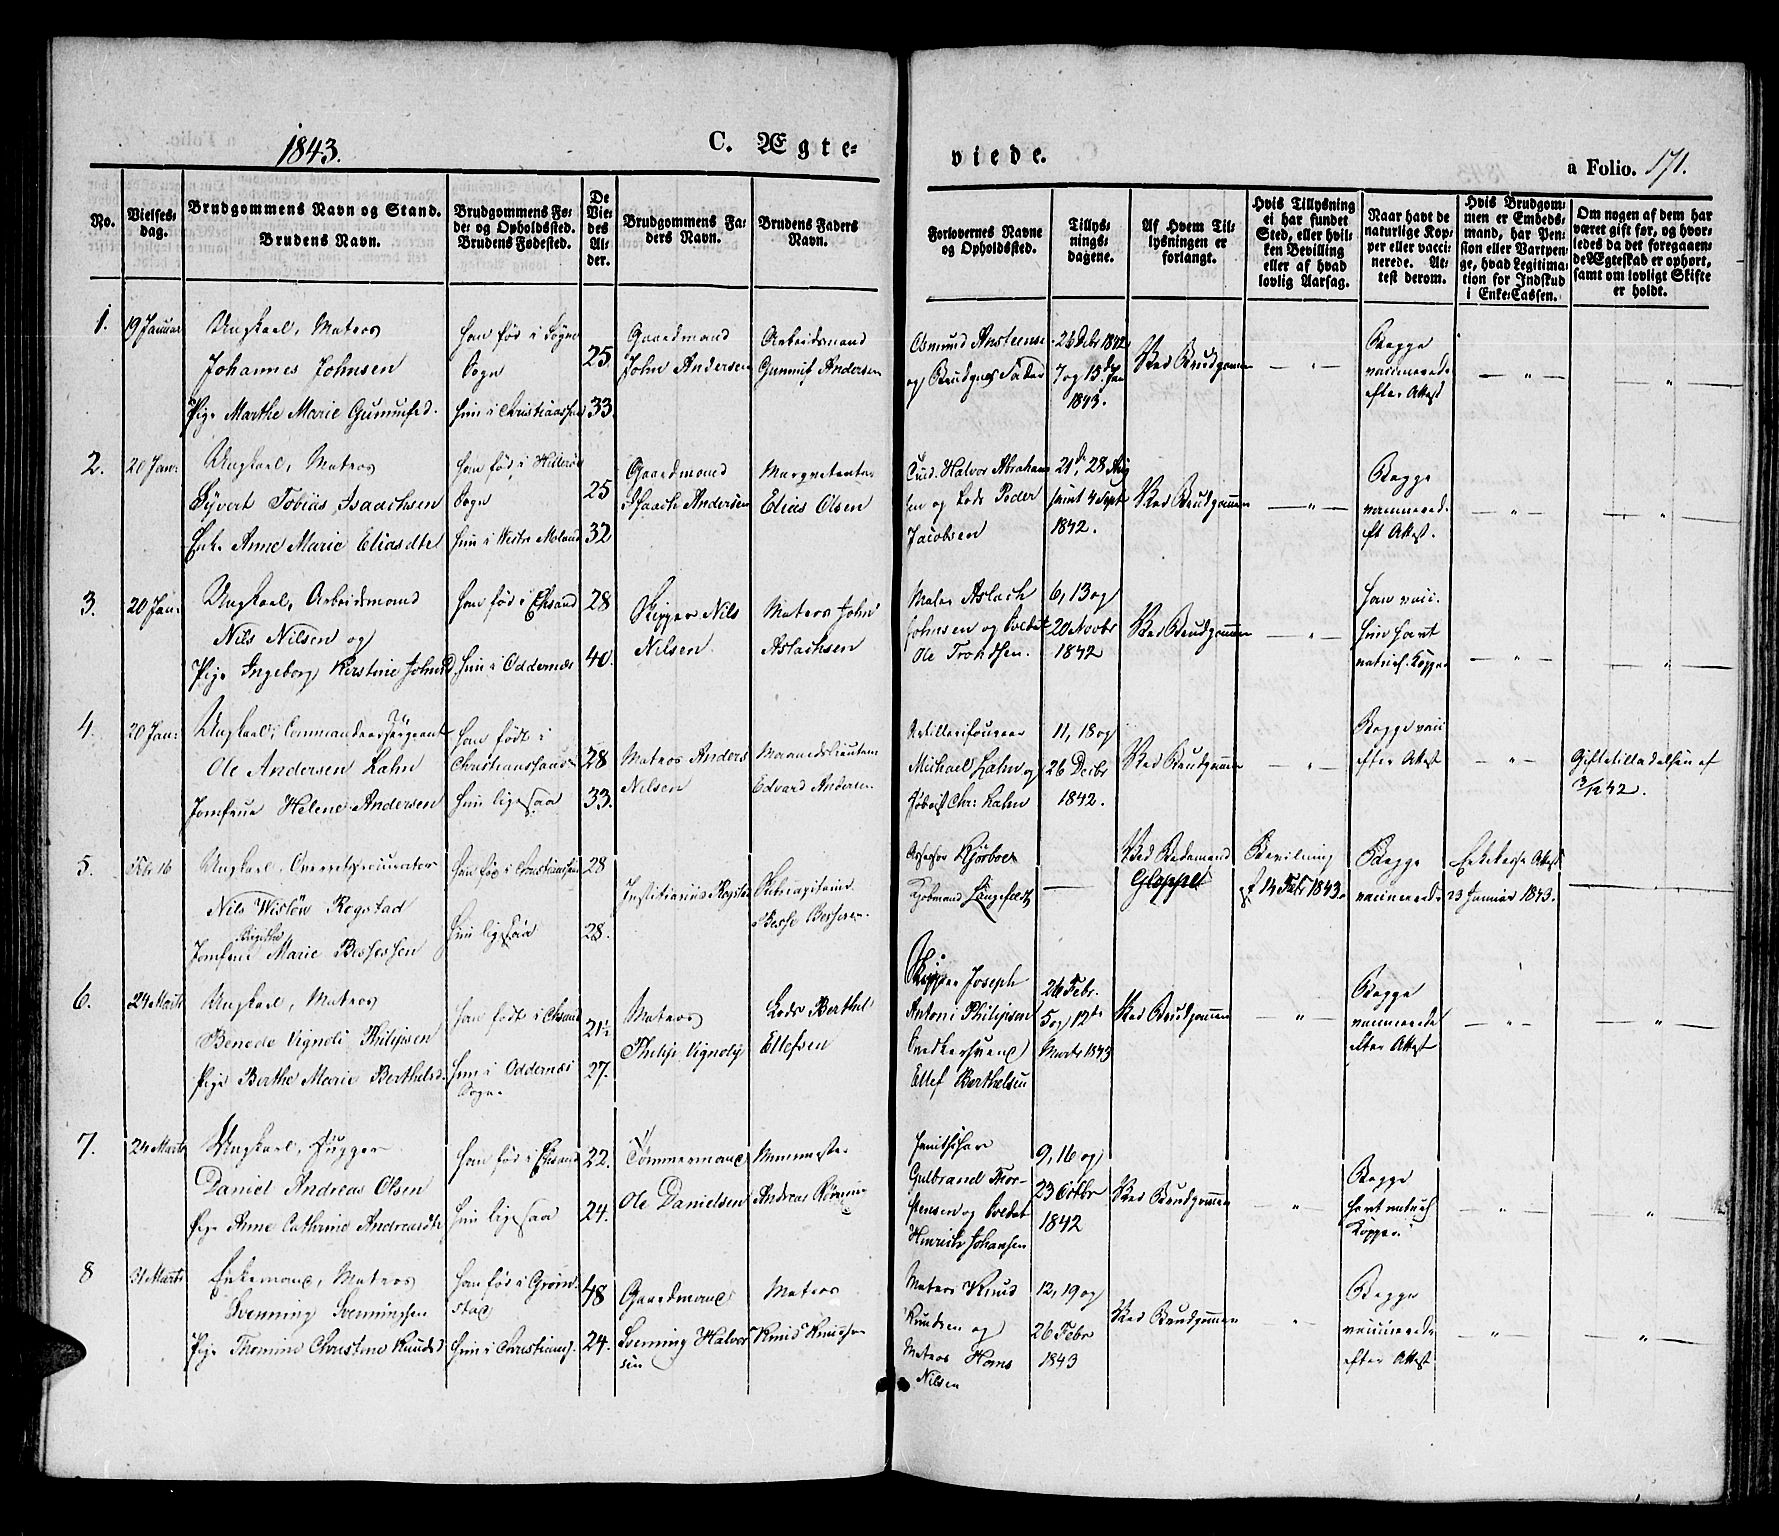 1843.
C. Ægte-
viede.
a Folio. 171.
No.
Vielses-
dag.
Brudgommens Navn og Stand.
Brudens Navn.
Brudgommens Fø-
de- og Opholdssted.
Brudens Fødested.
De
Vie-
des
Al-
der.
Brudgommens Fa-
ders Navn.
Brudens Faders
Navn.
Forlovernes Navne
og Opholdssted.
Tillys-
nings-
dagene.
Af Hvem Til-
lysningen er
forlangt.
Hvis Tillysning
ei har fundet
Sted, eller hvil-
ken Bevilling
eller af hvad
lovlig Aarsag.
Naar havt de
naturlige Kop-
per eller vacci-
nerede. At-
test derom.
Hvis Brudgom-
men er Embeds-
mand, har Pen-
sion eller Vartpen-
ge, hvad Legitima-
tion for Indskud
i Enke-Cassen.
Om nogen af dem har
været gift før, og hvor-
ledes da det foregaaen-
de Ægteskab er ophørt,
samt om lovligt Skifte
er holdt.
1.
19 Januar
Ungkarl, Matros
Johannes Johnsen
Pige Marthe Marie Gunnufsd.
han fød i Søgne
Sogn
hun i Christianssand
25
33.
Gaardmand
John Andersen
Arbeidsmand
Gunnuf Andersen
Osmund Anstensen
og Brudgms Fader
26 Debr 1842
7 og 15de Jan
1843.
Ved Brudgommen
Begge
vaccinerede
efter Attest
2.
20 Jan:
Ungkarl, Matros
Syvert Tobias Isaachsen
Enke Anne Marie Eliasdtr
han fød i Hitterøe
Sogn
hun i Westre Moland
25
32
Gaardmand
Isaach Andersen
Elias Olsen
Halvor Abraham-
sen og Lods Peder
Jacobsen
21de, 28 Aug
samt 4 Septr
1842.
Ved Brudgommen
Begge
vaccinerede
eft Attest.
3.
20 Jan:
Ungkarl, Arbeidsmand
Nils Nilsen og
Pige Ingeborg Kirstine Johnsd
han fød i Chsand
hun i Oddernæs
28
40.
Skipper Nils
Nilsen.
Matros John
Aslachsen
Maler Aslach
Johnsen og
Ole Trondsen.
6, 13 og
20 Novbr
1842
Ved Brudgommen
han vacci.
hun havt
naturl. Kopper
4.
20 Jan:
Ungkarl, Commandeersergeant
Ole Andersen Lahn
Jomfrue Helene Andersen
han født i
Christianssand
hun ligesaa
28
33.
Matros Anders
Nilsen
Maanedslieutenant
Edvard Andersen
Artillerifoureer
Michael Lahn og
Chr: Lahn
11, 18 og
26 Decbr
1842.
Ved Brudgommen
Begge vacci
efter Attest
Giftetilladelsen af
42.
5.
Febr 16
Ungkarl, Overretsprocurator
Nils Wisløw Rogstad
Jomfrue Birgithe Marie Bessessen
han fød i Christianssand
hun ligesaa
28
28.
Justitiarius Rogstad
Skibscapitaine
Besse Bessesen.
Assessor Kjørboe
Kjøbmand Langfeldt
Ved Bedemand
Gloppel
Bevilling
af 14 Febr 1843.
Begge
vaccinerede
Enkekasse Attest
23 Januar 1843.
6.
24 Marts
Ungkarl, Matros
Benede Vignoli Philipsen
Pige Berthe Marie Berthelsd.
han født i Chsand
hun i Oddernæs
Sogn
21½
27.
Matros
Philip Vignoly
Lods Berthel
Ellefsen
Skipper Joseph
Antoni Philipsen
Snedkersvend
Ellef Berthelsen
26 Febr.
5 og 12te
Marts 1843
Ved Brudgommen
Begge
vaccinerede
efter Attest
7.
24 Marts
Ungkarl,
Daniel Andreas Olsen
Pige Anne Cathrine Andreasdtr
han fød i Chsand
hun ligesaa
22.
24.
Tømmermand
Ole Danielsen
Gulbrand Thor-
stensen og
Hinrich Johansen
9, 16 og
23 Octbr
1842
Ved Brudgommen
Begge
havt naturl
Kopper
8
31 Marts
Enkemand, Matros
Svenning Svenningsen
Pige Thomine Christine Knudsd
han fød i Grøm-
stad
hun i Christianss.
48
24.
Gaardmand
Svenning Halvor-
sen
Matros
Knud Knudsen
Matros Knud
Knudsen og
Matros Hans
Nilsen
12, 19 og
26 Febr
1843
Ved Brudgommen
Begge
vaccinerede
efter Attest